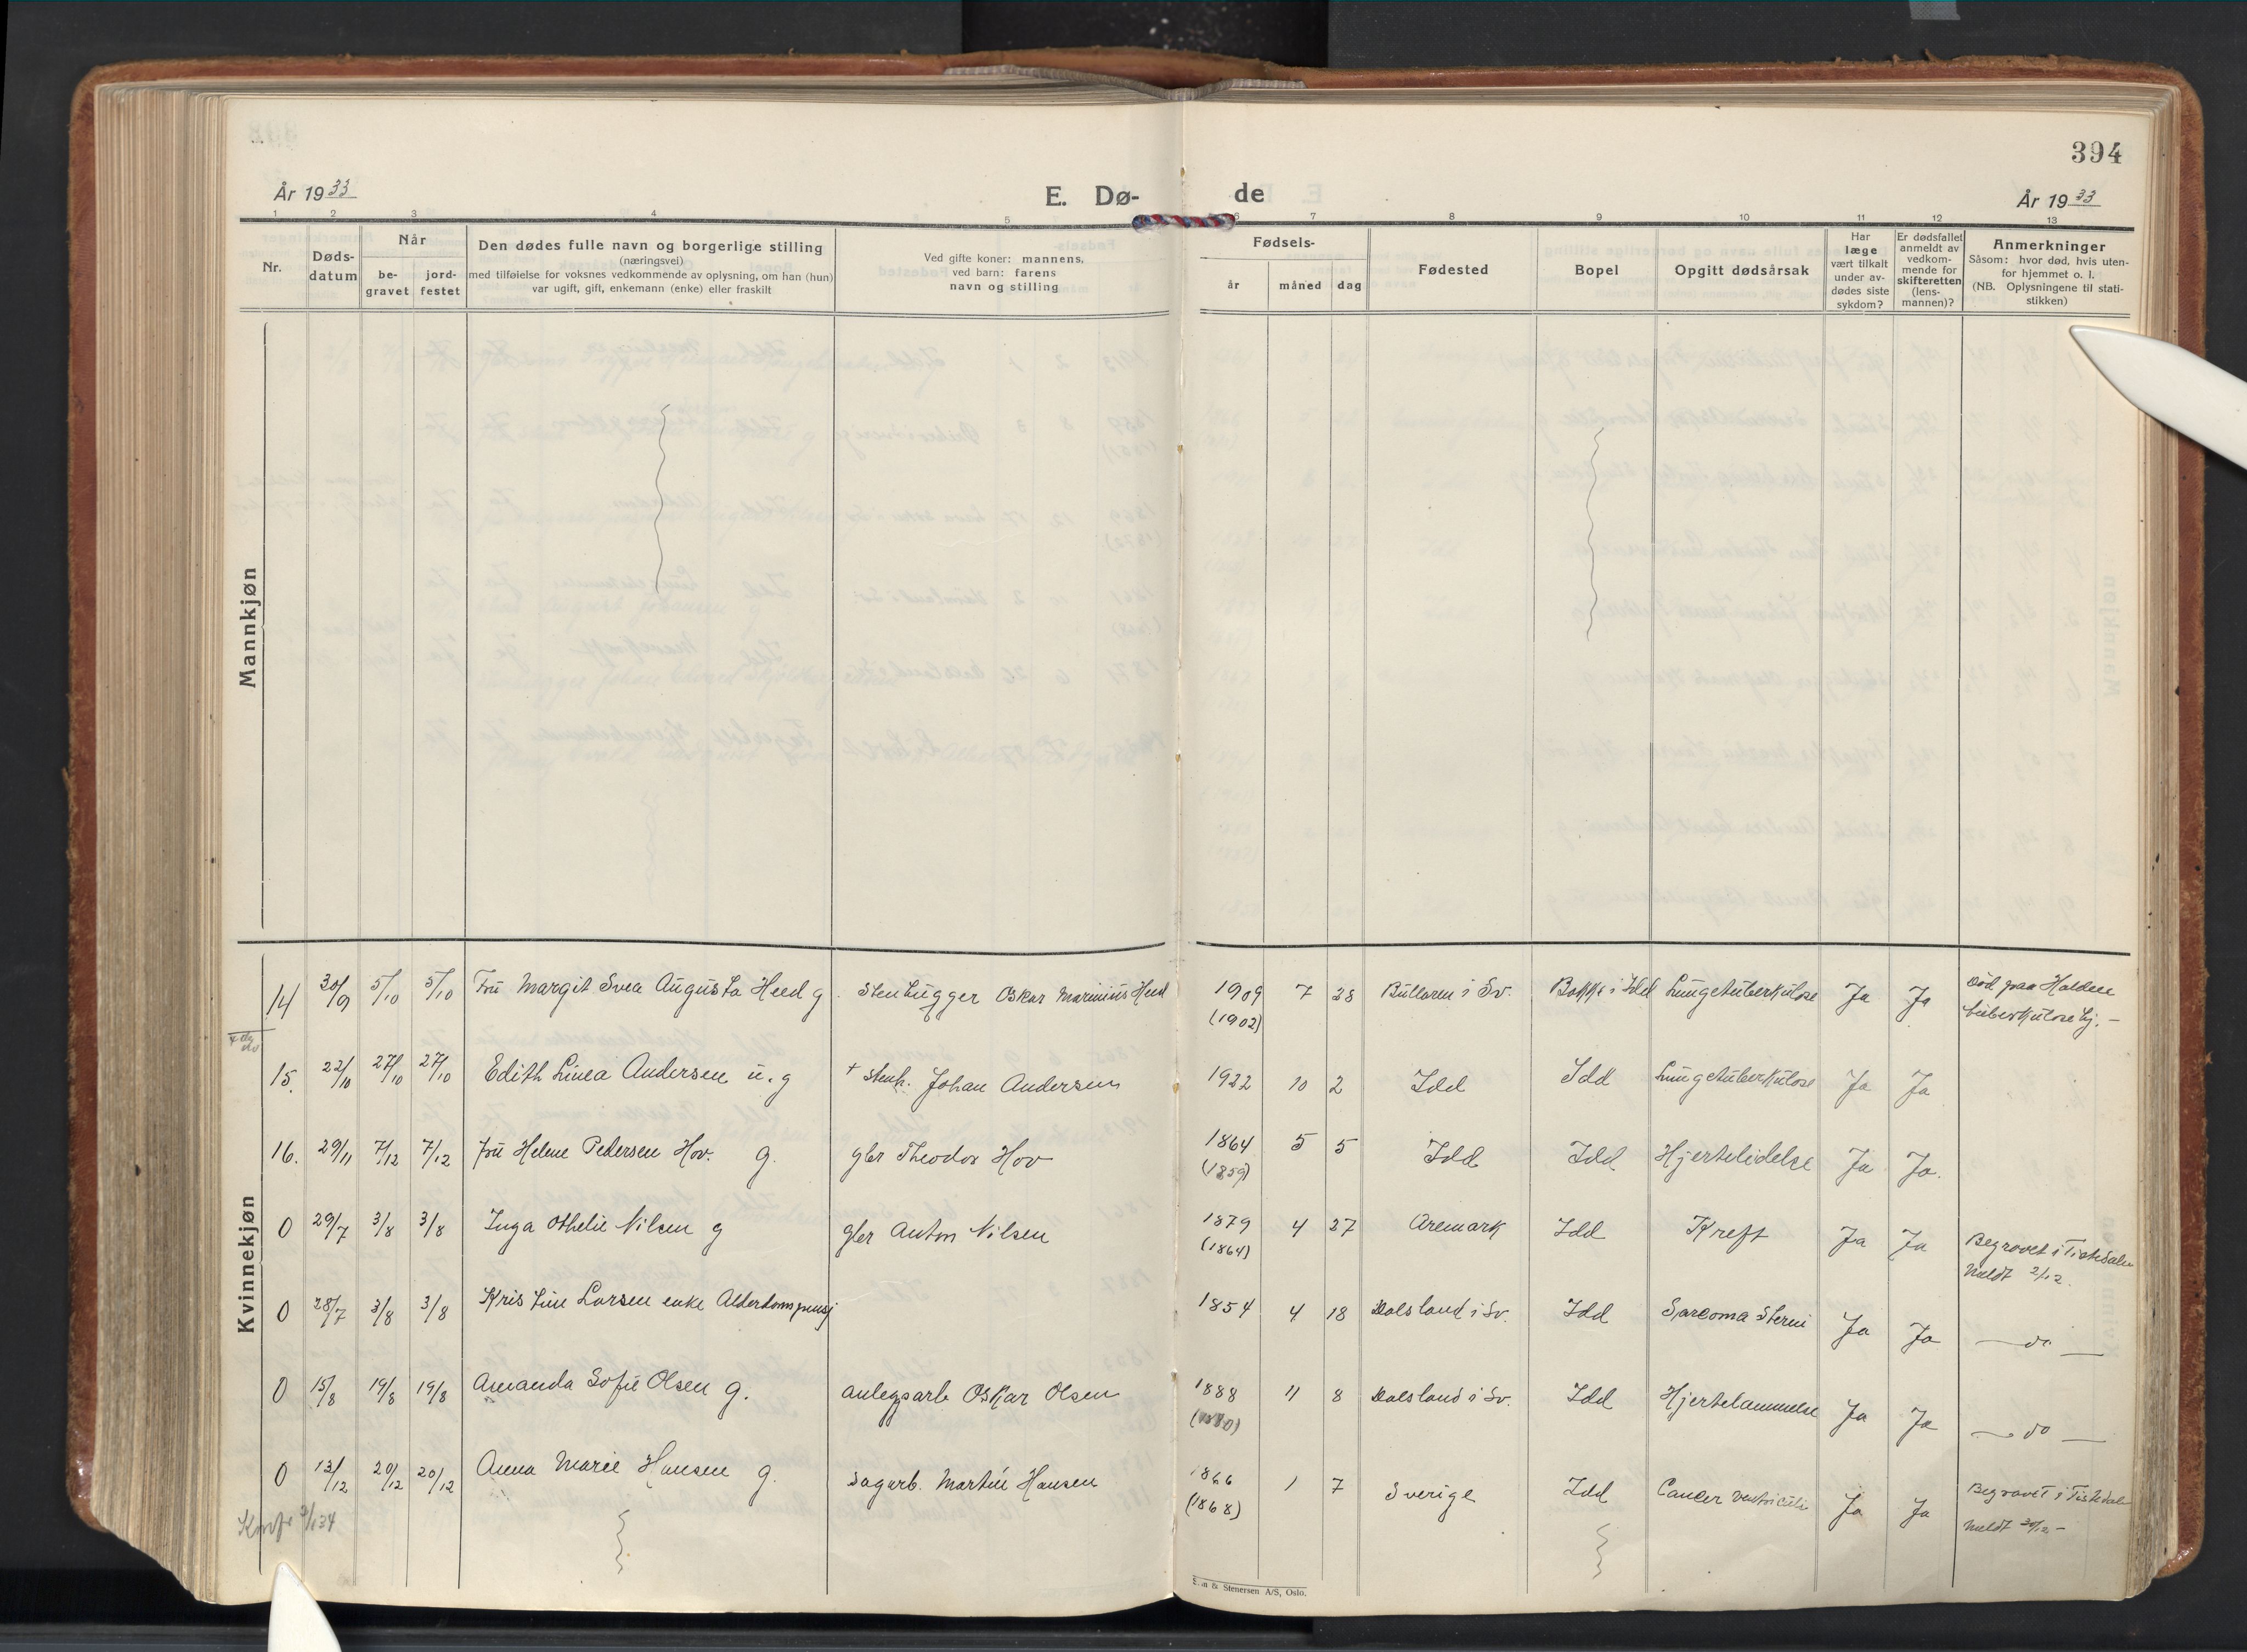 394
År 1933
E. Dø-
de
År 1933
1 2 3 4 5 6 7 8 9 10 11 12 13
Nr.
Døds-
datum
Når
be-
gravet
jord-
festet
Den dødes fulle navn og borgerlige stilling
(næringsvei)
med tilføielse for voksnes vedkommende av oplysning, om han (hun)
var ugift, gift, enkemann (enke) eller fraskilt
Ved gifte koner: mannens,
ved barn: farens
navn og stilling
Fødsels-
år måned dag
Fødested
Bopel
Opgitt dødsårsak
Har
læge
vært tilkalt
under av-
dødes siste
sykdom?
Er dødsfallet
anmeldt av
vedkom-
mende for
skifteretten
(lens-
mannen)?
Anmerkninger
Såsom: hvor død, hvis uten-
for hjemmet o. l.
(NB. Oplysningene til stati-
stikken)
Mannkjøn
Kvinnekjøn
14 30/9 5/10 5/10 Fru Margit Svea Augusta Heed g. Stenhugger Oskar Marinius Heed 1909 7 28 Bullaren i Sv. Bakke i Idd Lungetuberkulose Ja Ja Død paa Halden
(1902) tuberkulosehj. -
15. 22/10 27/10 27/10 Edith Linea Andersen u. g + Stenh. Johan Andersen 1922 10 2 Idd Idd Lungetuberkulose Ja Ja
16. 29/11 7/12 7/12 Fru Helene Pedersen Hov. g. gbr Theodor Hov 1864 5 5 Idd Idd Hjertelidelse Ja Ja.
(1859)
0 29/7 3/8 3/8 Inga Othelie Nilsen g gbr Anton Nilsen 1879 4 27 Aremark Idd Kreft Ja Ja Begravet i Tistedalen
(1864) meldt 2/12.
0 28/7 3/8 3/8 Kristine Larsen enke Alderdomspensj 1854 4 18 Dalsland i Sv. Idd Sarcoma Sterni Ja Ja — do —
0 15/8 19/8 19/8 Amanda Sofie Olsen g. anlegsarb Oskar Olsen 1888 11 8 Dalsland i Sv. Idd Hjertelammelse Ja Ja — do —
0 13/12 20/12 20/12 Anna Marie Hansen g. sagarb. Martin Hansen 1866 1 7 Sverige Idd Cancer ventriculi Ja Ja Begravet i Tistedalen
(1868) meldt 30/12 -
Konf. 3/1 34
& Stenersen A/S, Oslo.